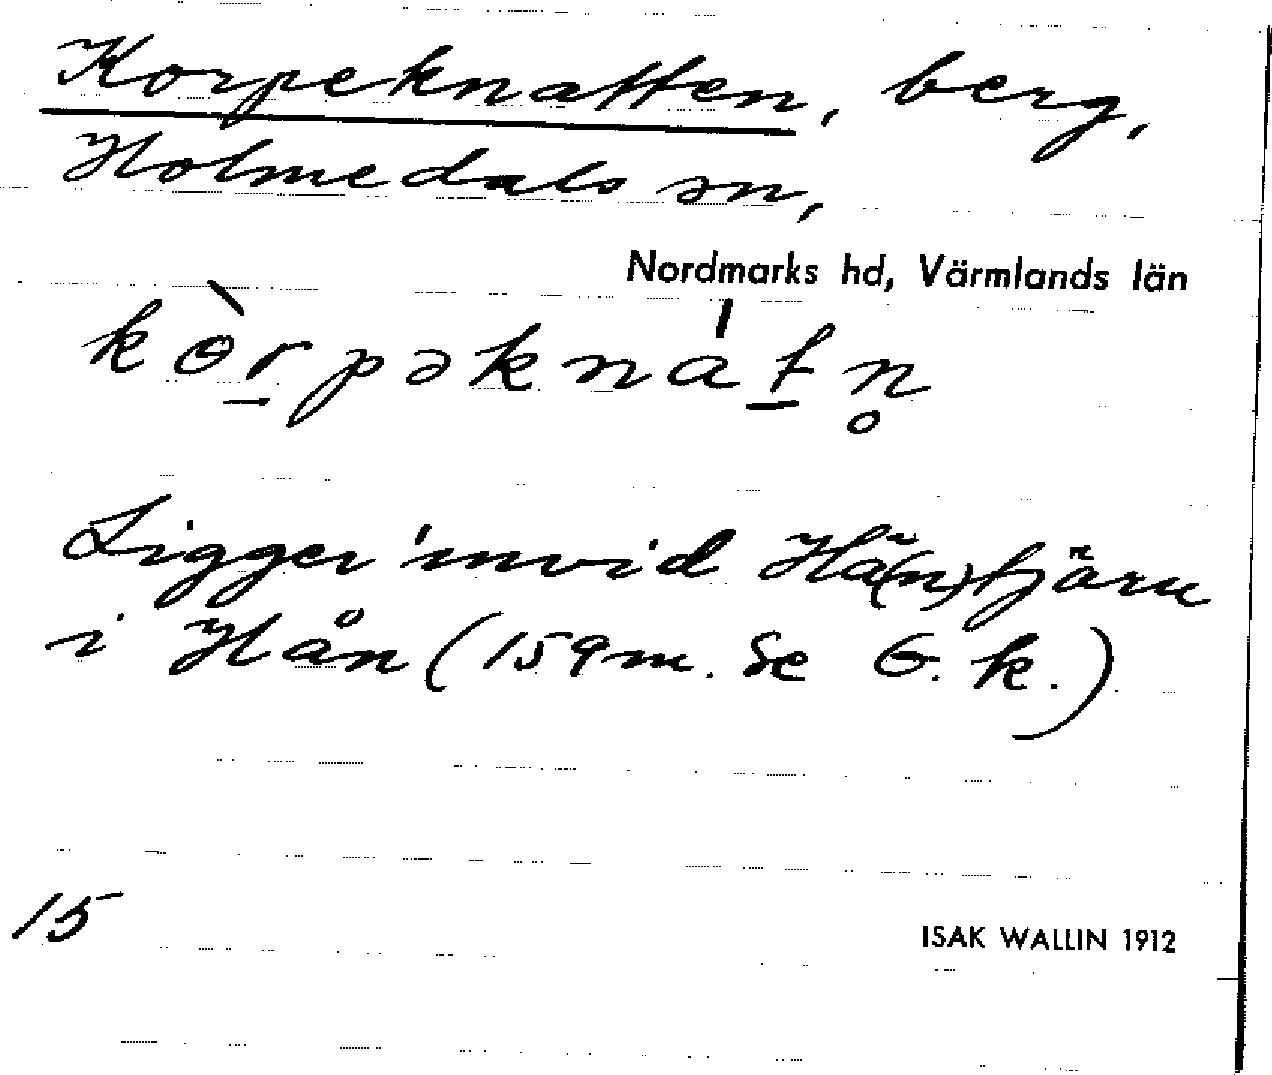 Korpeknatten, berg,
Holmedals sn,
Nordmarks hd, Värmlands län
kɵ̀r̲pəkna̍t̲n̥
Ligger invid Hå(n)tjärn
i Hån (159 m. Se G. k.)
15
ISAK WALLIN 1912